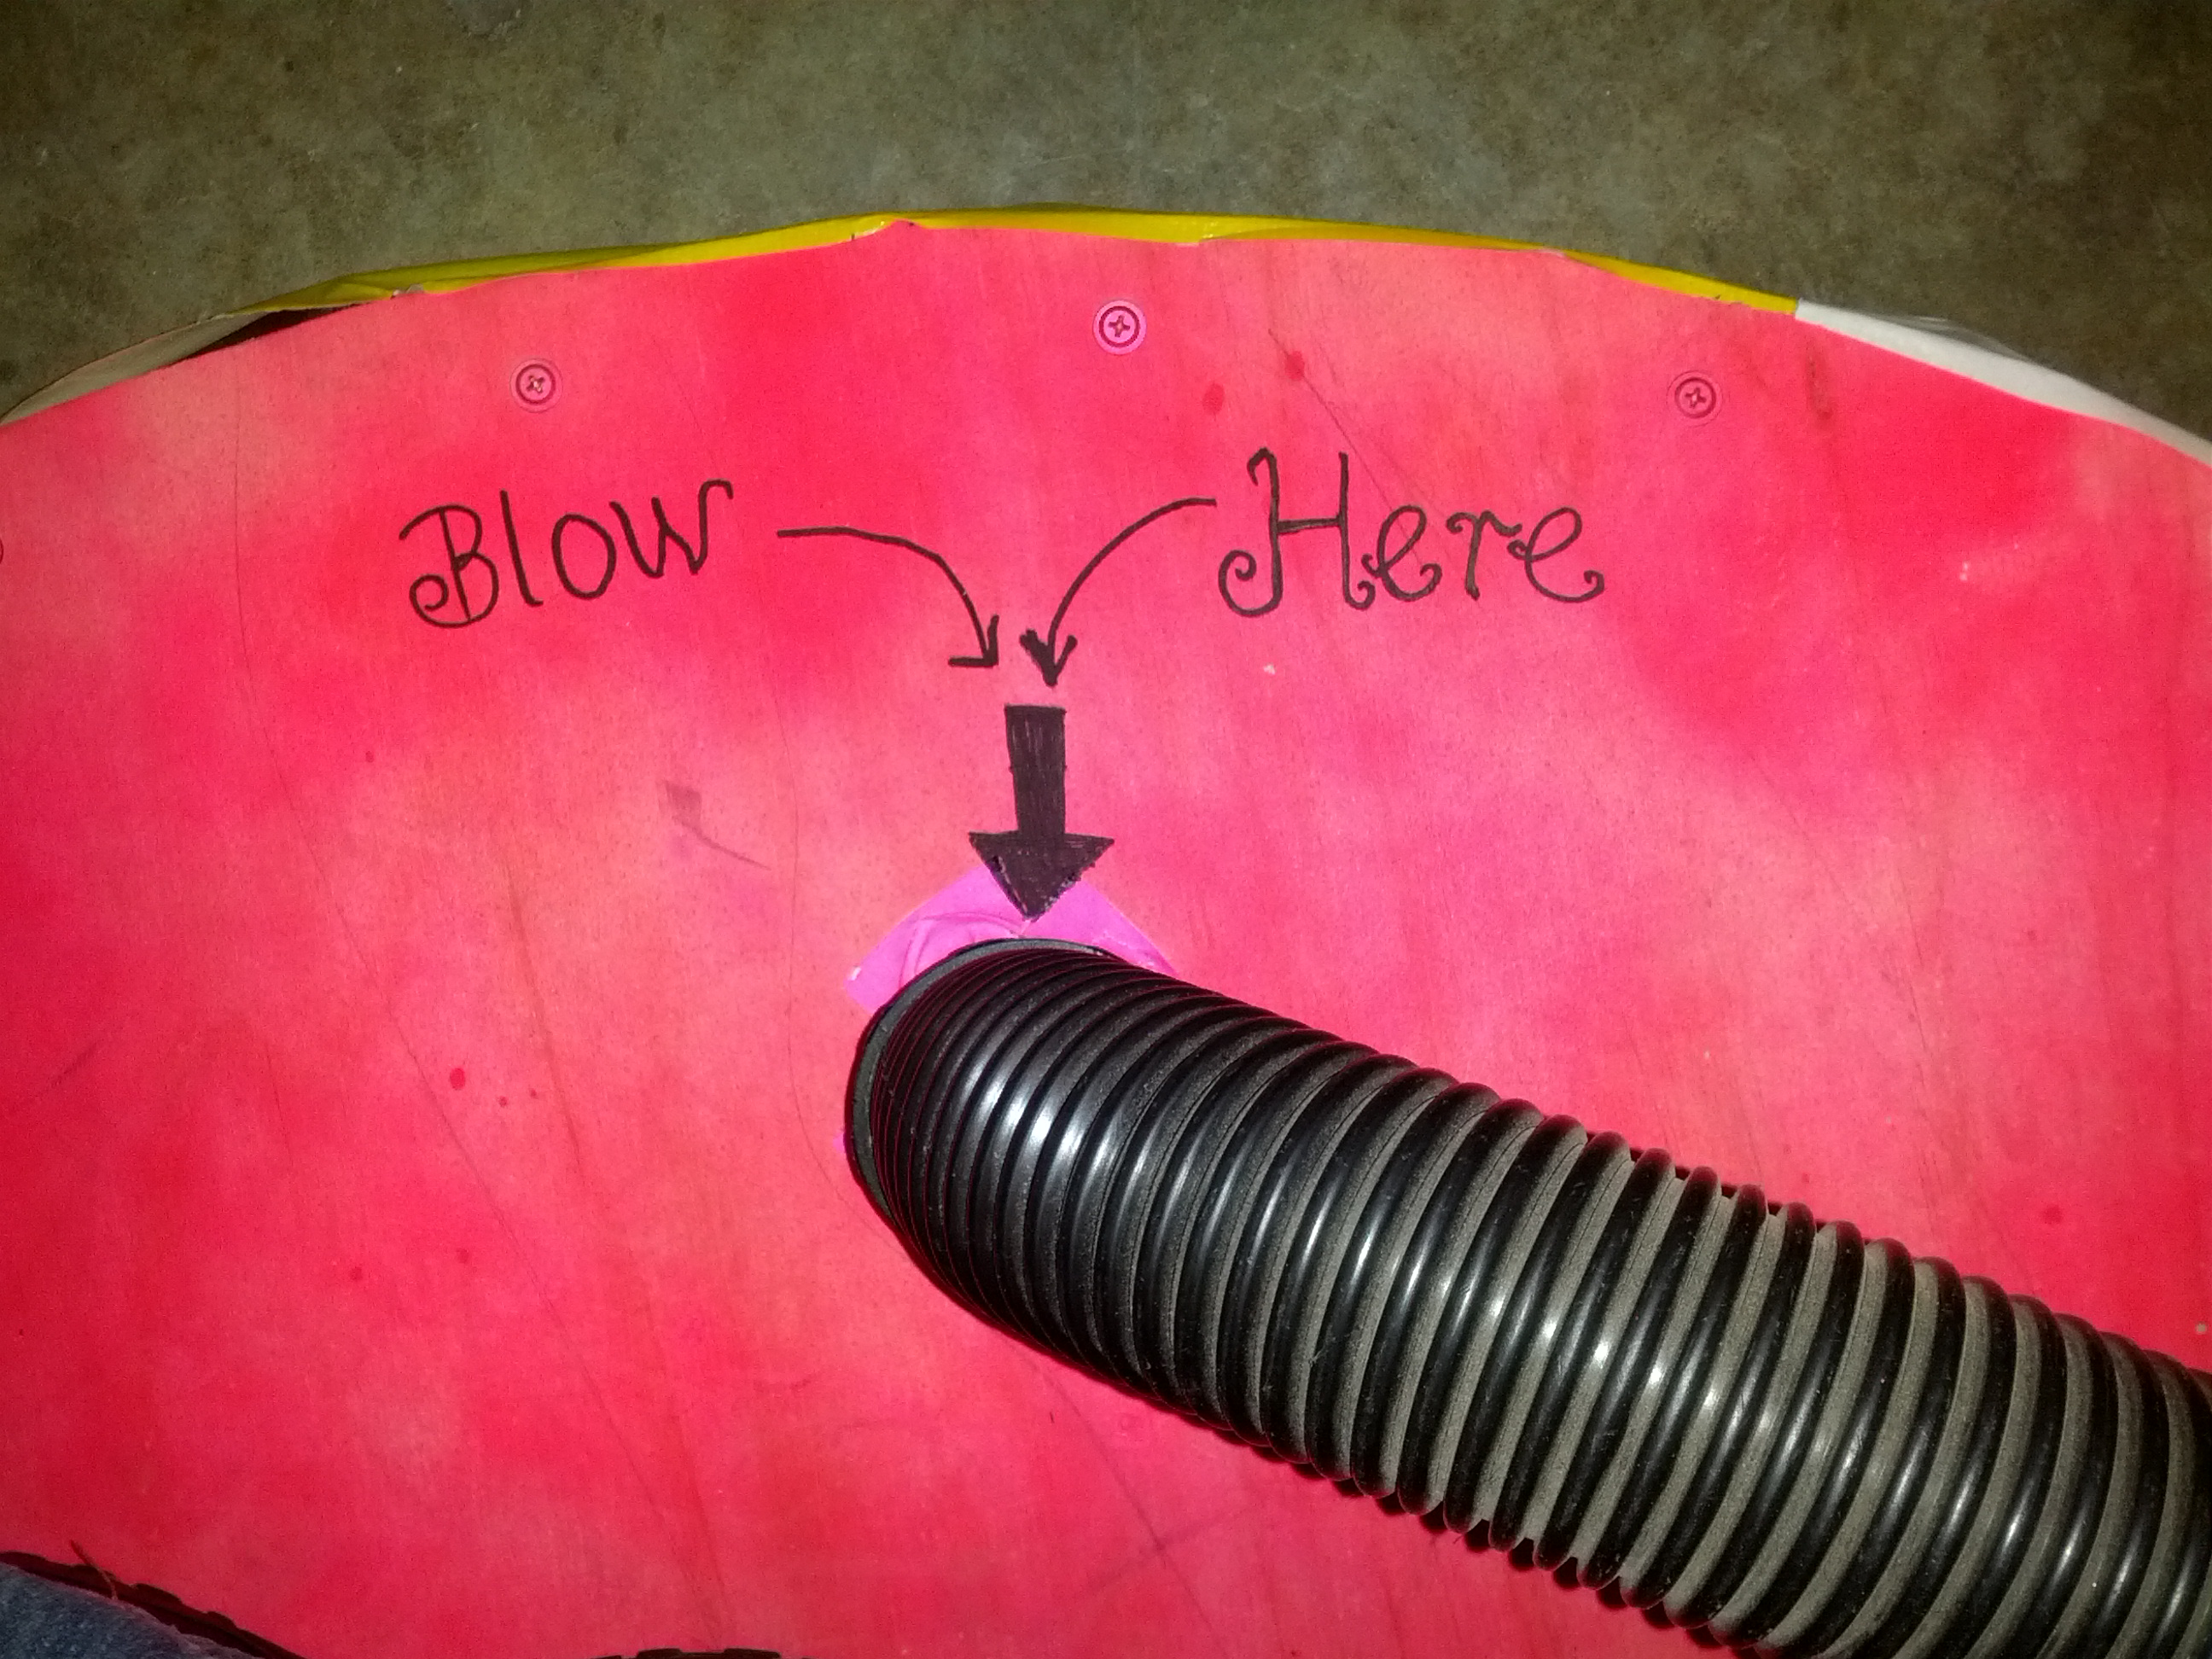 Blow Here